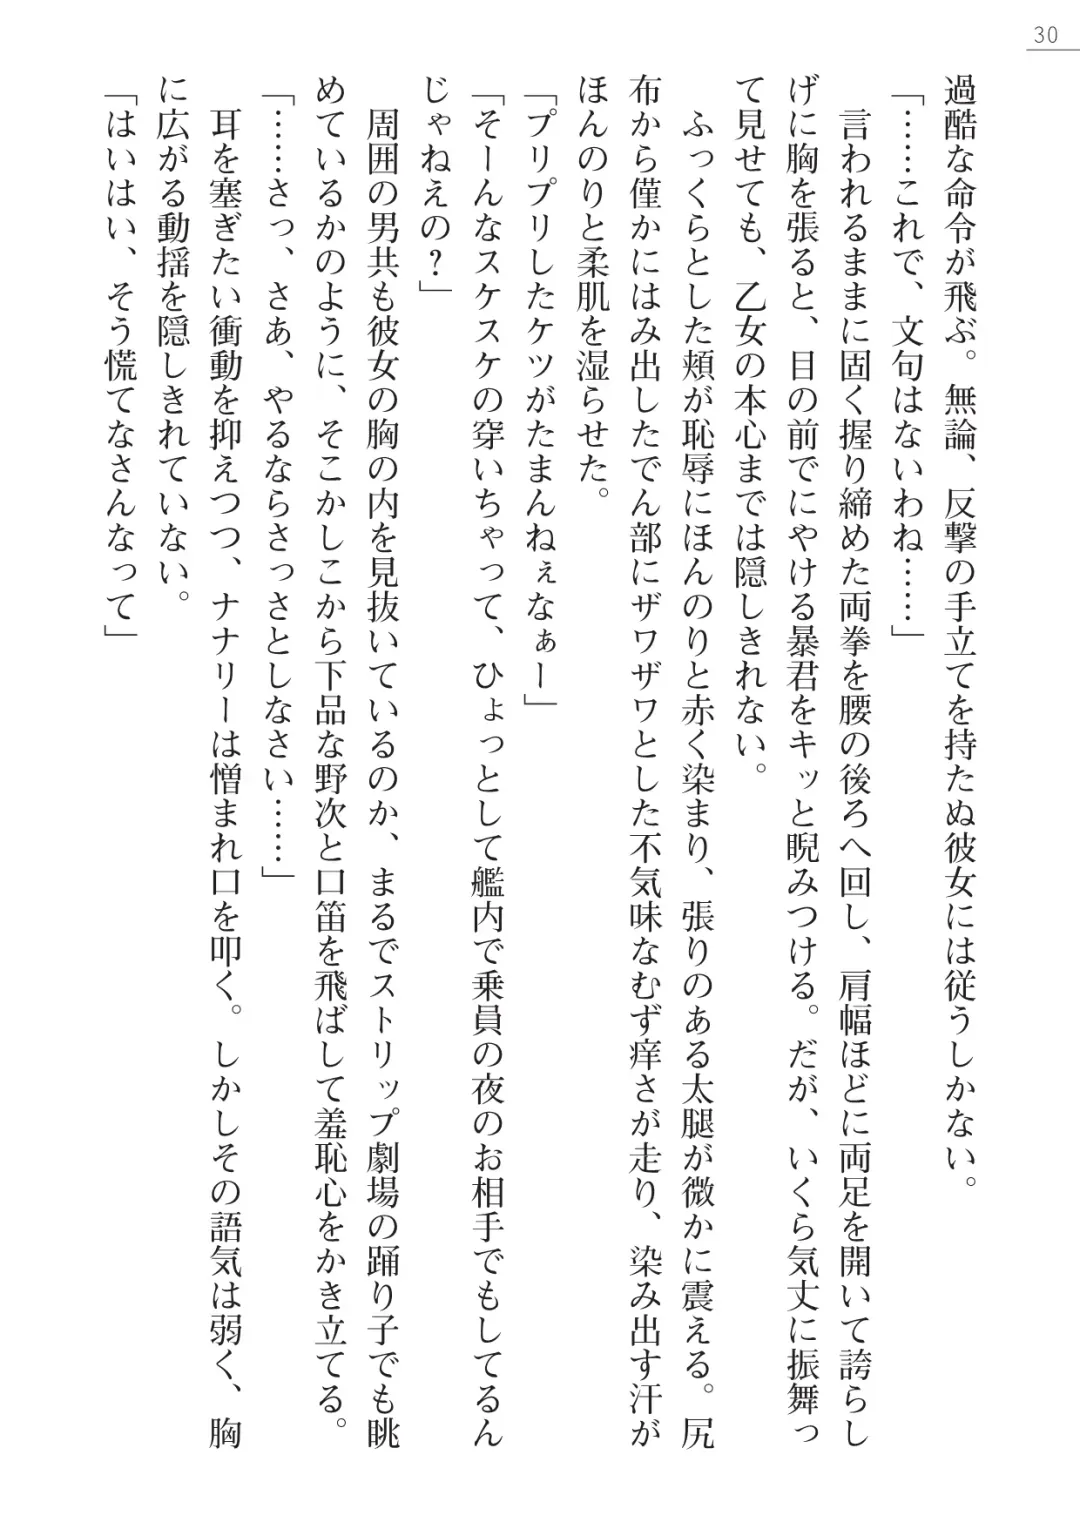 30
過酷な命令が飛ぶ。無論、反撃の手立てを持たぬ彼女には従うしかない。
「……これで、文句はないわね……」
言われるままに固く握り締めた両拳を腰の後ろへ回し、肩幅ほどに両足を開いて誇らし
げに胸を張ると、目の前でにやける暴君をキッと睨みつける。だが、いくら気丈に振舞っ
て見せても、乙女の本心までは隠しきれない。
ふっくらとした頬が恥辱にほんのりと赤く染まり、張りのある太腿が微かに震える。尻
布から僅かにはみ出したでん部にザワザワとした不気味なむず痒さが走り、染み出す汗が
ほんのりと柔肌を湿らせた。
「プリプリしたケツがたまんねぇなぁー」
「そーんなスケスケの穿いちゃって、ひょっとして艦内で乗員の夜のお相手でもしてるん
じゃねえの？」
周囲の男共も彼女の胸の内を見抜いているのか、まるでストリップ劇場の踊り子でも眺
めているかのように、そこかしこから下品な野次と口笛を飛ばして羞恥心をかき立てる。
「……さっ、さあ、やるならさっさとしなさい……」
耳を塞ぎたい衝動を抑えつつ、ナナリーは憎まれ口を叩く。しかしその語気は弱く、胸
に広がる動揺を隠しきれていない。
「はいはい、そう慌てなさんなって」